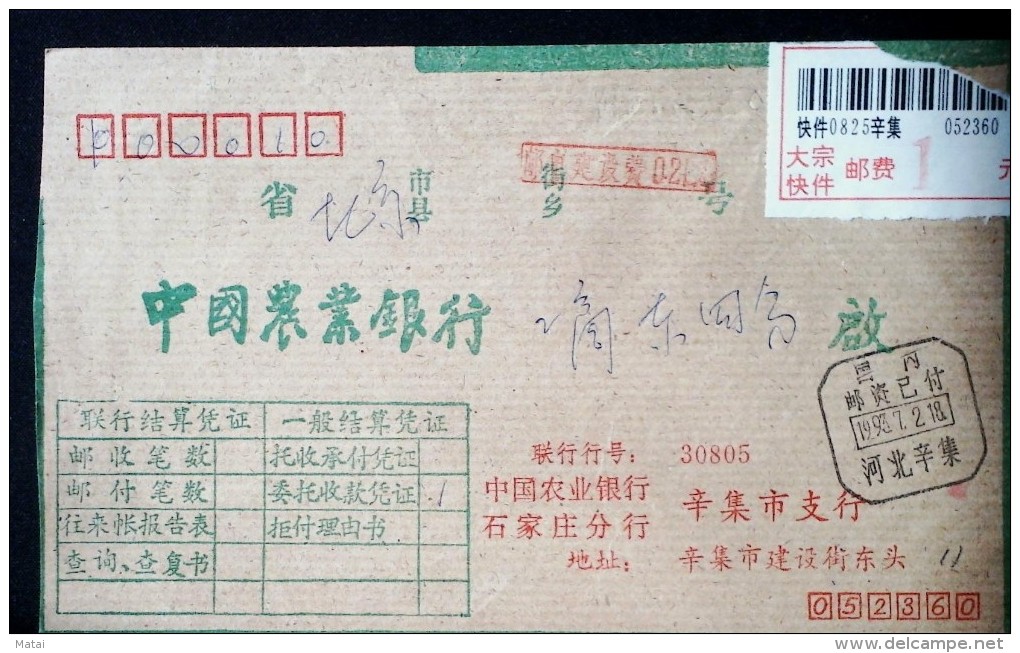 快件0825辛集 052360
大宗快件 邮费 1 元
省 北京 市县 街乡 号
中國農業銀行 啟
联行结算凭证 一般结算凭证
邮收笔数 托收承付凭证
邮付笔数 委托收款凭证 1
往来帐报告表 拒付理由书
查询、查复书
国内
邮资已付
1993.7.2.18
河北辛集
联行行号: 30805
中国农业银行
石家庄分行 辛集市支行
地址: 辛集市建设街东头 11
052360
Matai
delcampe.net